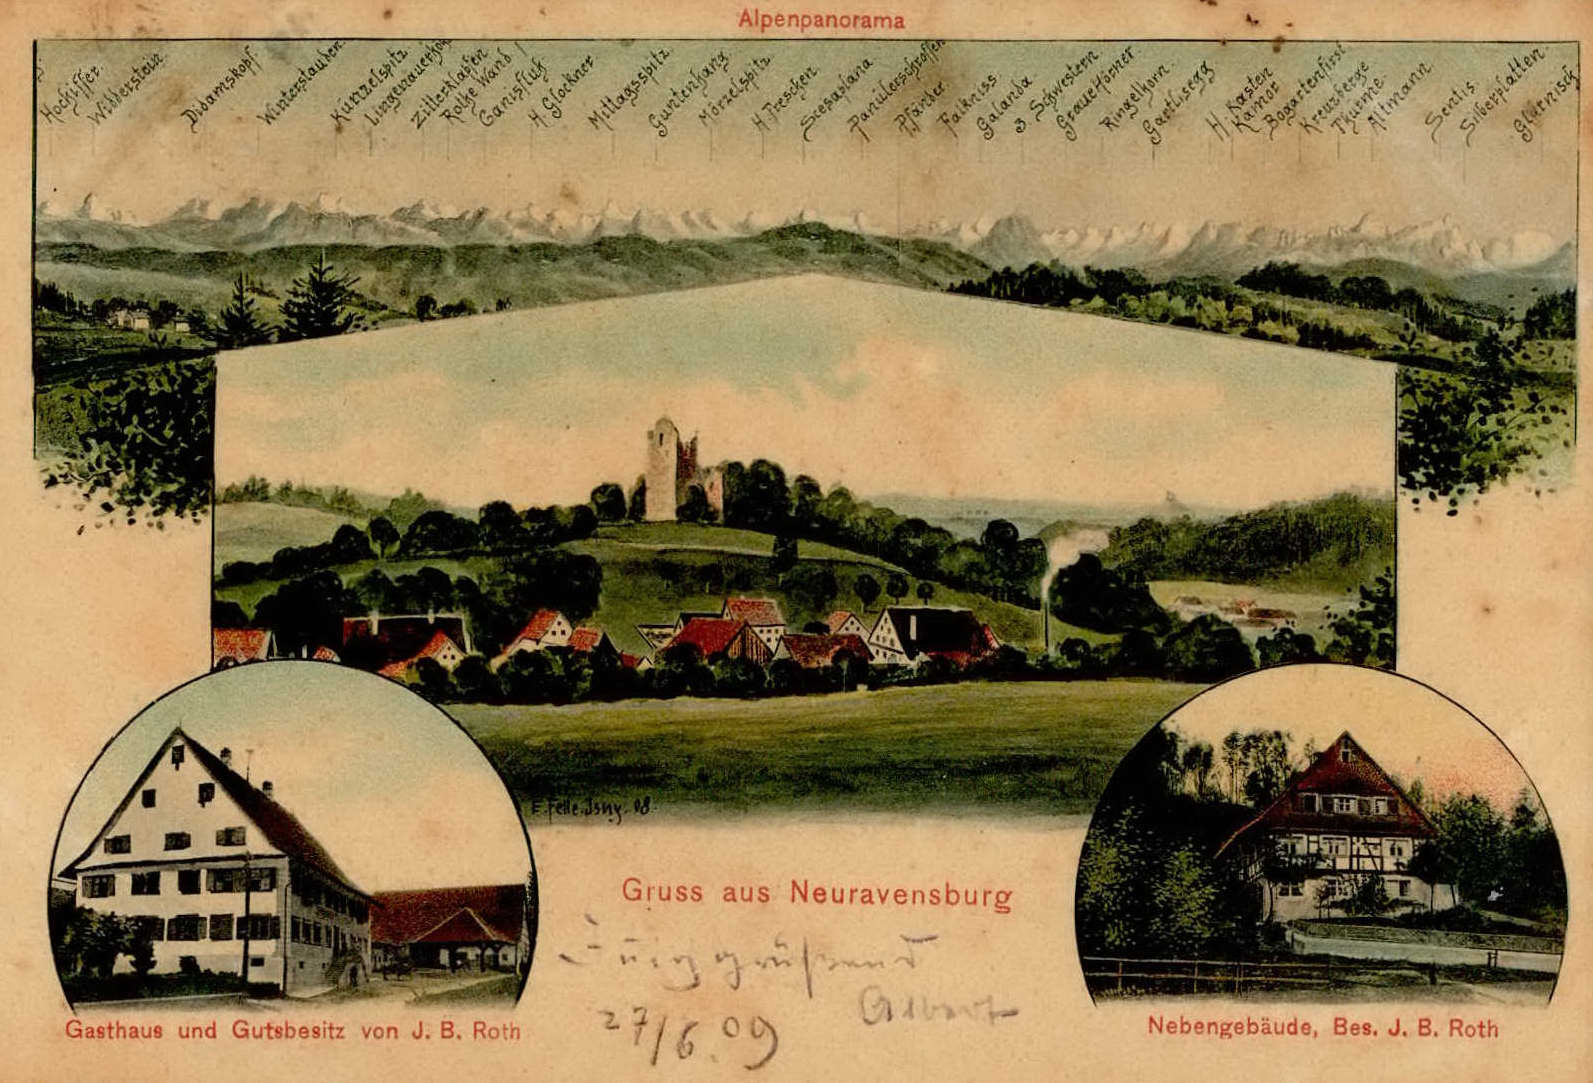 Alpenpanorama
Hochiffer.
Widderstein.
Didamskopf.
Winterstauden.
Künzelspitz.
Lingenauerkopf
Zitterklapfen
Rothe Wand
Ganisfluh
H. Glockner
Mittagsspitz.
Guntenhang.
Mörzelspitz.
H. Freschen.
Scesaplana
Panülerschroffen
Pfänder
Falkniss
Galanda
3 Schwestern.
Graue Hörner
Ringelhorn.
Garthsegg
H. Kasten
Kamor
Bogartenfirst
Kreuzberge
Thürme.
Altmann.
Sentis.
Silberplatten.
Glärnisch
E. Felle. Isny. 08.
Gruss aus Neuravensburg
grüßend
Albert
27/6. 09
Gasthaus und Gutsbesitz von J. B. Roth
Nebengebäude, Bes. J. B. Roth